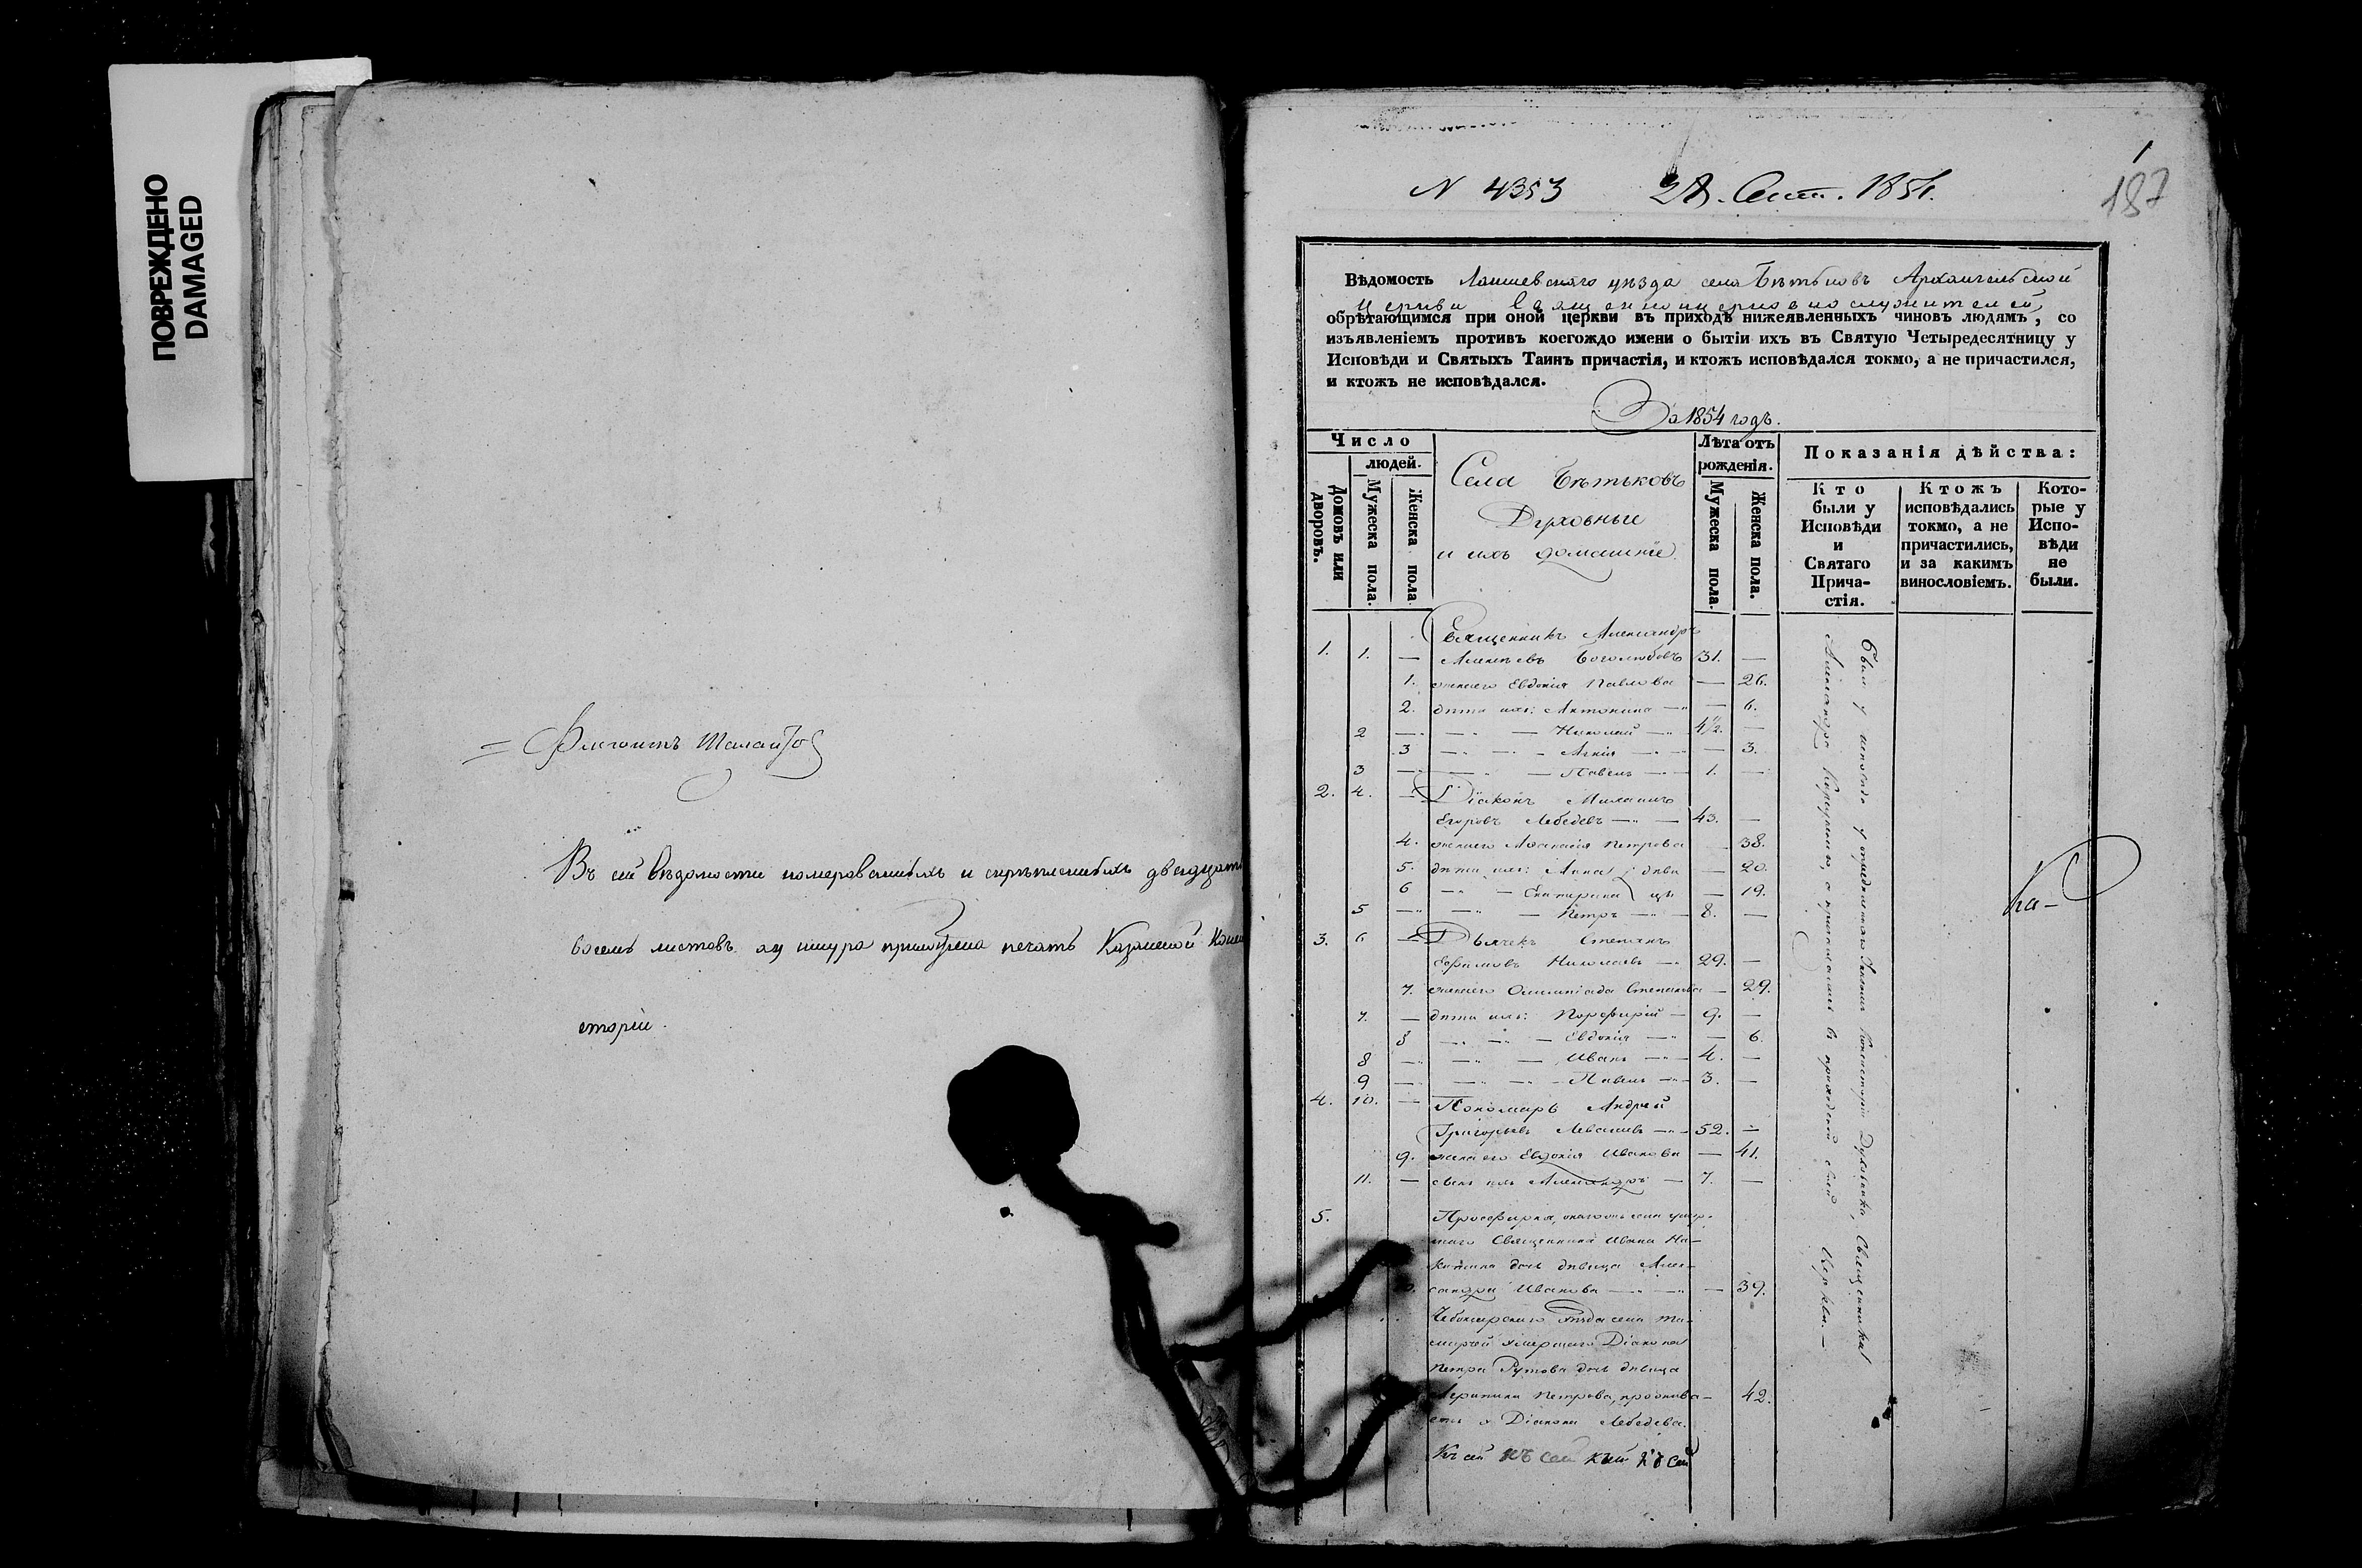 ПОВРЕЖДЕНО
DAMAGED
Въ сей вѣдомости номерованныхъ и скрѣпленныхъ двадцать
восемь листовъ, ку шнура приложена печать Казанской Конси
сторіи.
187
1
N 4353 28. Сент. 1854.
Вѣдомость Лаишевскаго уѣзда села Бѣтьковъ Архангельской
Церкви Священноцерковнослужителей,
обрѣтающимся при оной церкви въ приходѣ нижеявленныхъ чиновъ людямъ, со
изъявленіемъ противъ коегождо имени о бытіи ихъ въ Святую Четыредесятницу у
Исповѣди и Святыхъ Таинъ причастія, и ктожъ исповѣдался токмо, а не причастился,
и ктожъ не исповѣдался.
За 1854 годъ.
Число
людей.
Домовъ или дворовъ.
Мужеска пола.
Женска пола.
Села Бѣтьковъ
Духовные
и ихъ домашніе
Лѣта отъ
рожденія.
Мужеска пола.
Женска пола.
Показанія дѣйства:
Кто
были у
Исповѣди
и
Святаго
Прича-
стія.
Ктожъ
исповѣдались
токмо, а не
причастились,
и за какимъ
винословіемъ.
Кото-
рые у
Испо-
вѣди
не
были.
Священникъ Александръ
1. 1. — Алексѣевъ Боголюбовъ 31. —
1. жена его Евдокія Павлова — 26.
2. дѣти ихъ: Антонина — 6.
2 — Николай 4½. —
3 — Агнія — 3.
3 — Павелъ 1. —
2. 4. — Діаконъ Михаилъ
Егоровъ Лебедевъ 43. —
4. жена его Аѳанасія Петрова — 38.
5. дѣти ихъ: Анна дѣви — 20.
6 — Екатерина цы — 19.
5 — Петръ 8. —
3. 6 — Дьячекъ Степанъ
Ефимовъ Николаевъ 29. —
7. жена его Олимпіада Степанова — 29.
7. — дѣти ихъ: Порфирій 9. —
8 — Евдокія — 6.
8 — Иванъ 4. —
9 — Павелъ 3. —
4. 10. — Пономарь Андрей
Григорьевъ 52. —
9. жена его Евдокія Иванова — 41.
11. — сынъ ихъ Александръ 7. —
5. Просфирня, онаго же села умер-
шаго Священника Ивана Ни-
китина дочь дѣвица Алек-
сандра Иванова — 39.
Чебоксарскаго уѣзда села
умершаго Діакона
Петра дочь дѣвица
Петрова, прожива- 42.
етъ у Діакона Лебедева.
Къ сей къ сей къ сей къ сей
Были у исповѣди у Духовника, Священника
Александра въ приходской своей Церкви. —
Ка-